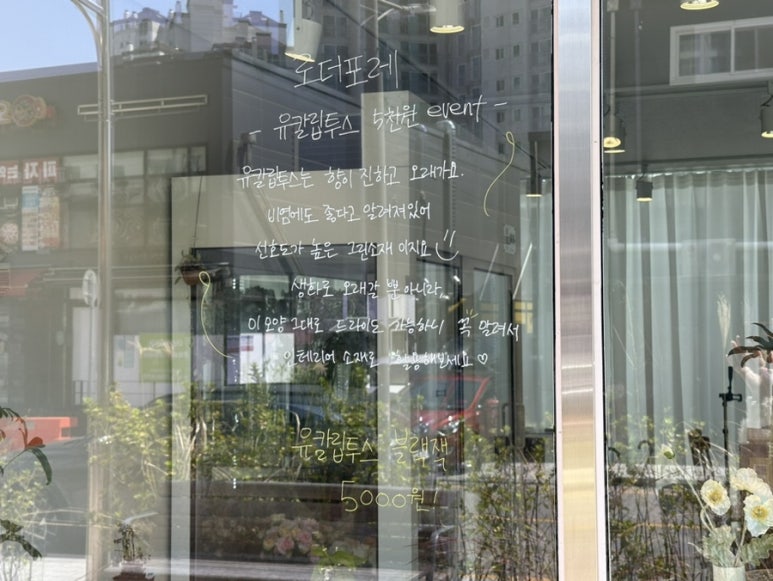 오더포레
- 유칼립투스 5천원 event -
유칼립투스는 향이 진하고 오래가요.
비염에도 좋다고 알려져있어
선호도가 높은 그린소재 이지요
생화로 오래갈 뿐 아니라,
이 모양 그대로 드라이도 가능하니 꼭 말려서
인테리어 소재로 활용해보세요 ♡
유칼립투스 블랙잭
5000원!